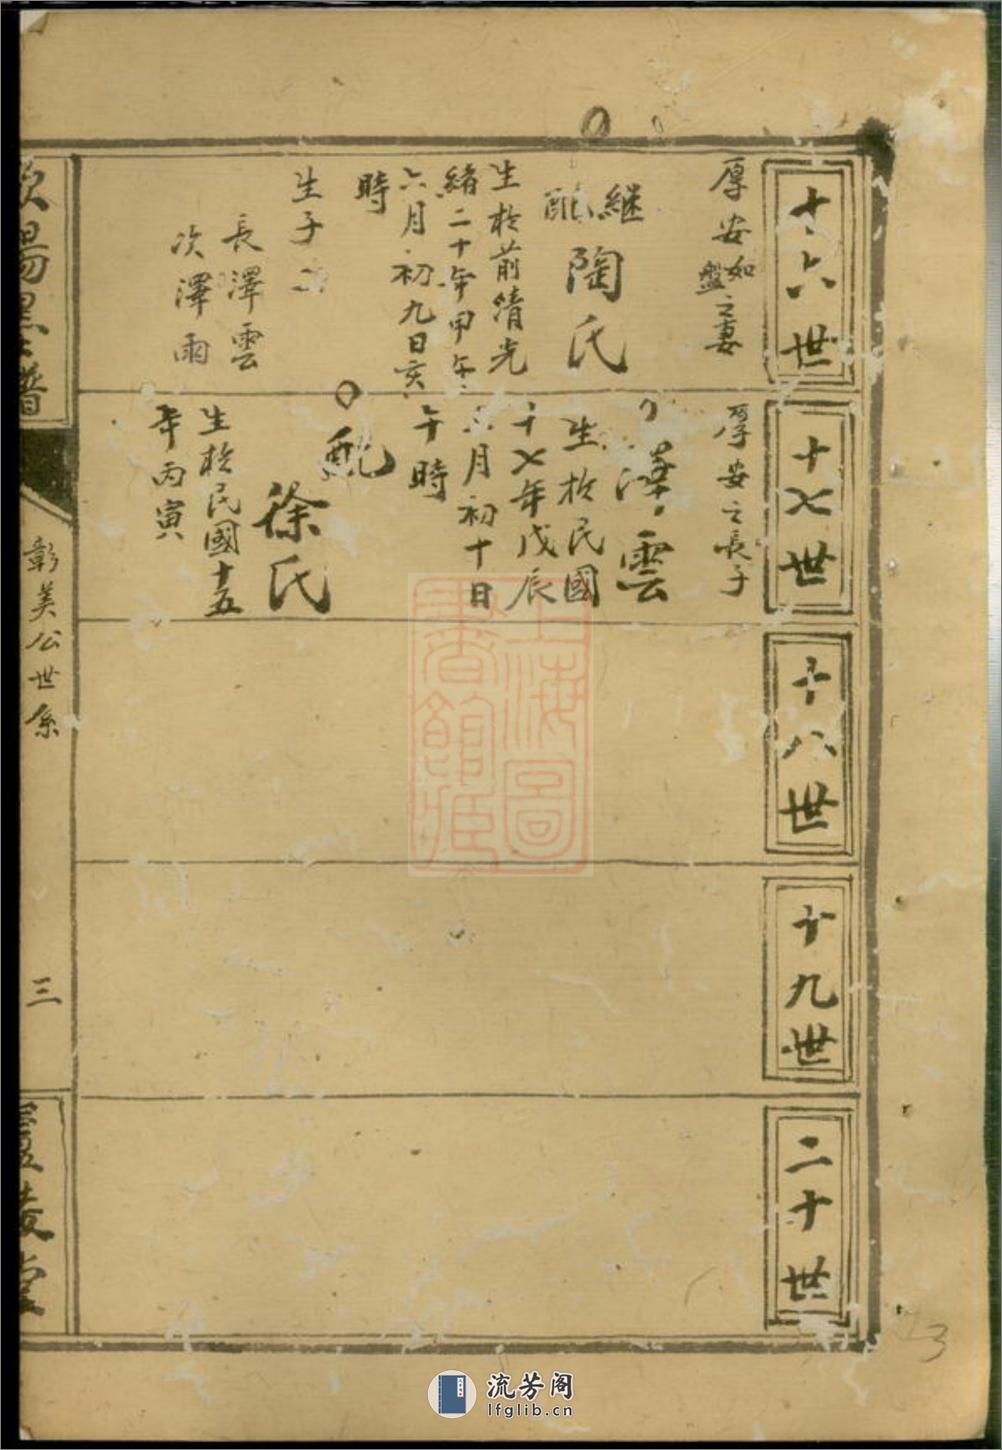 十六世
厚安如盤之妻
繼配陶氏
生於前清光
緒二十年甲午
六月初九日亥
時
生子二
長澤雲
次澤雨
十七世
厚安之長子
澤雲
生於民國
十七年戊辰
月初十日
午時
配
徐氏
生於民國十五
年丙寅
十八世
十九世
二十世
彰美公世系
三
上海圖
書館藏
流芳阁
lfglib.cn